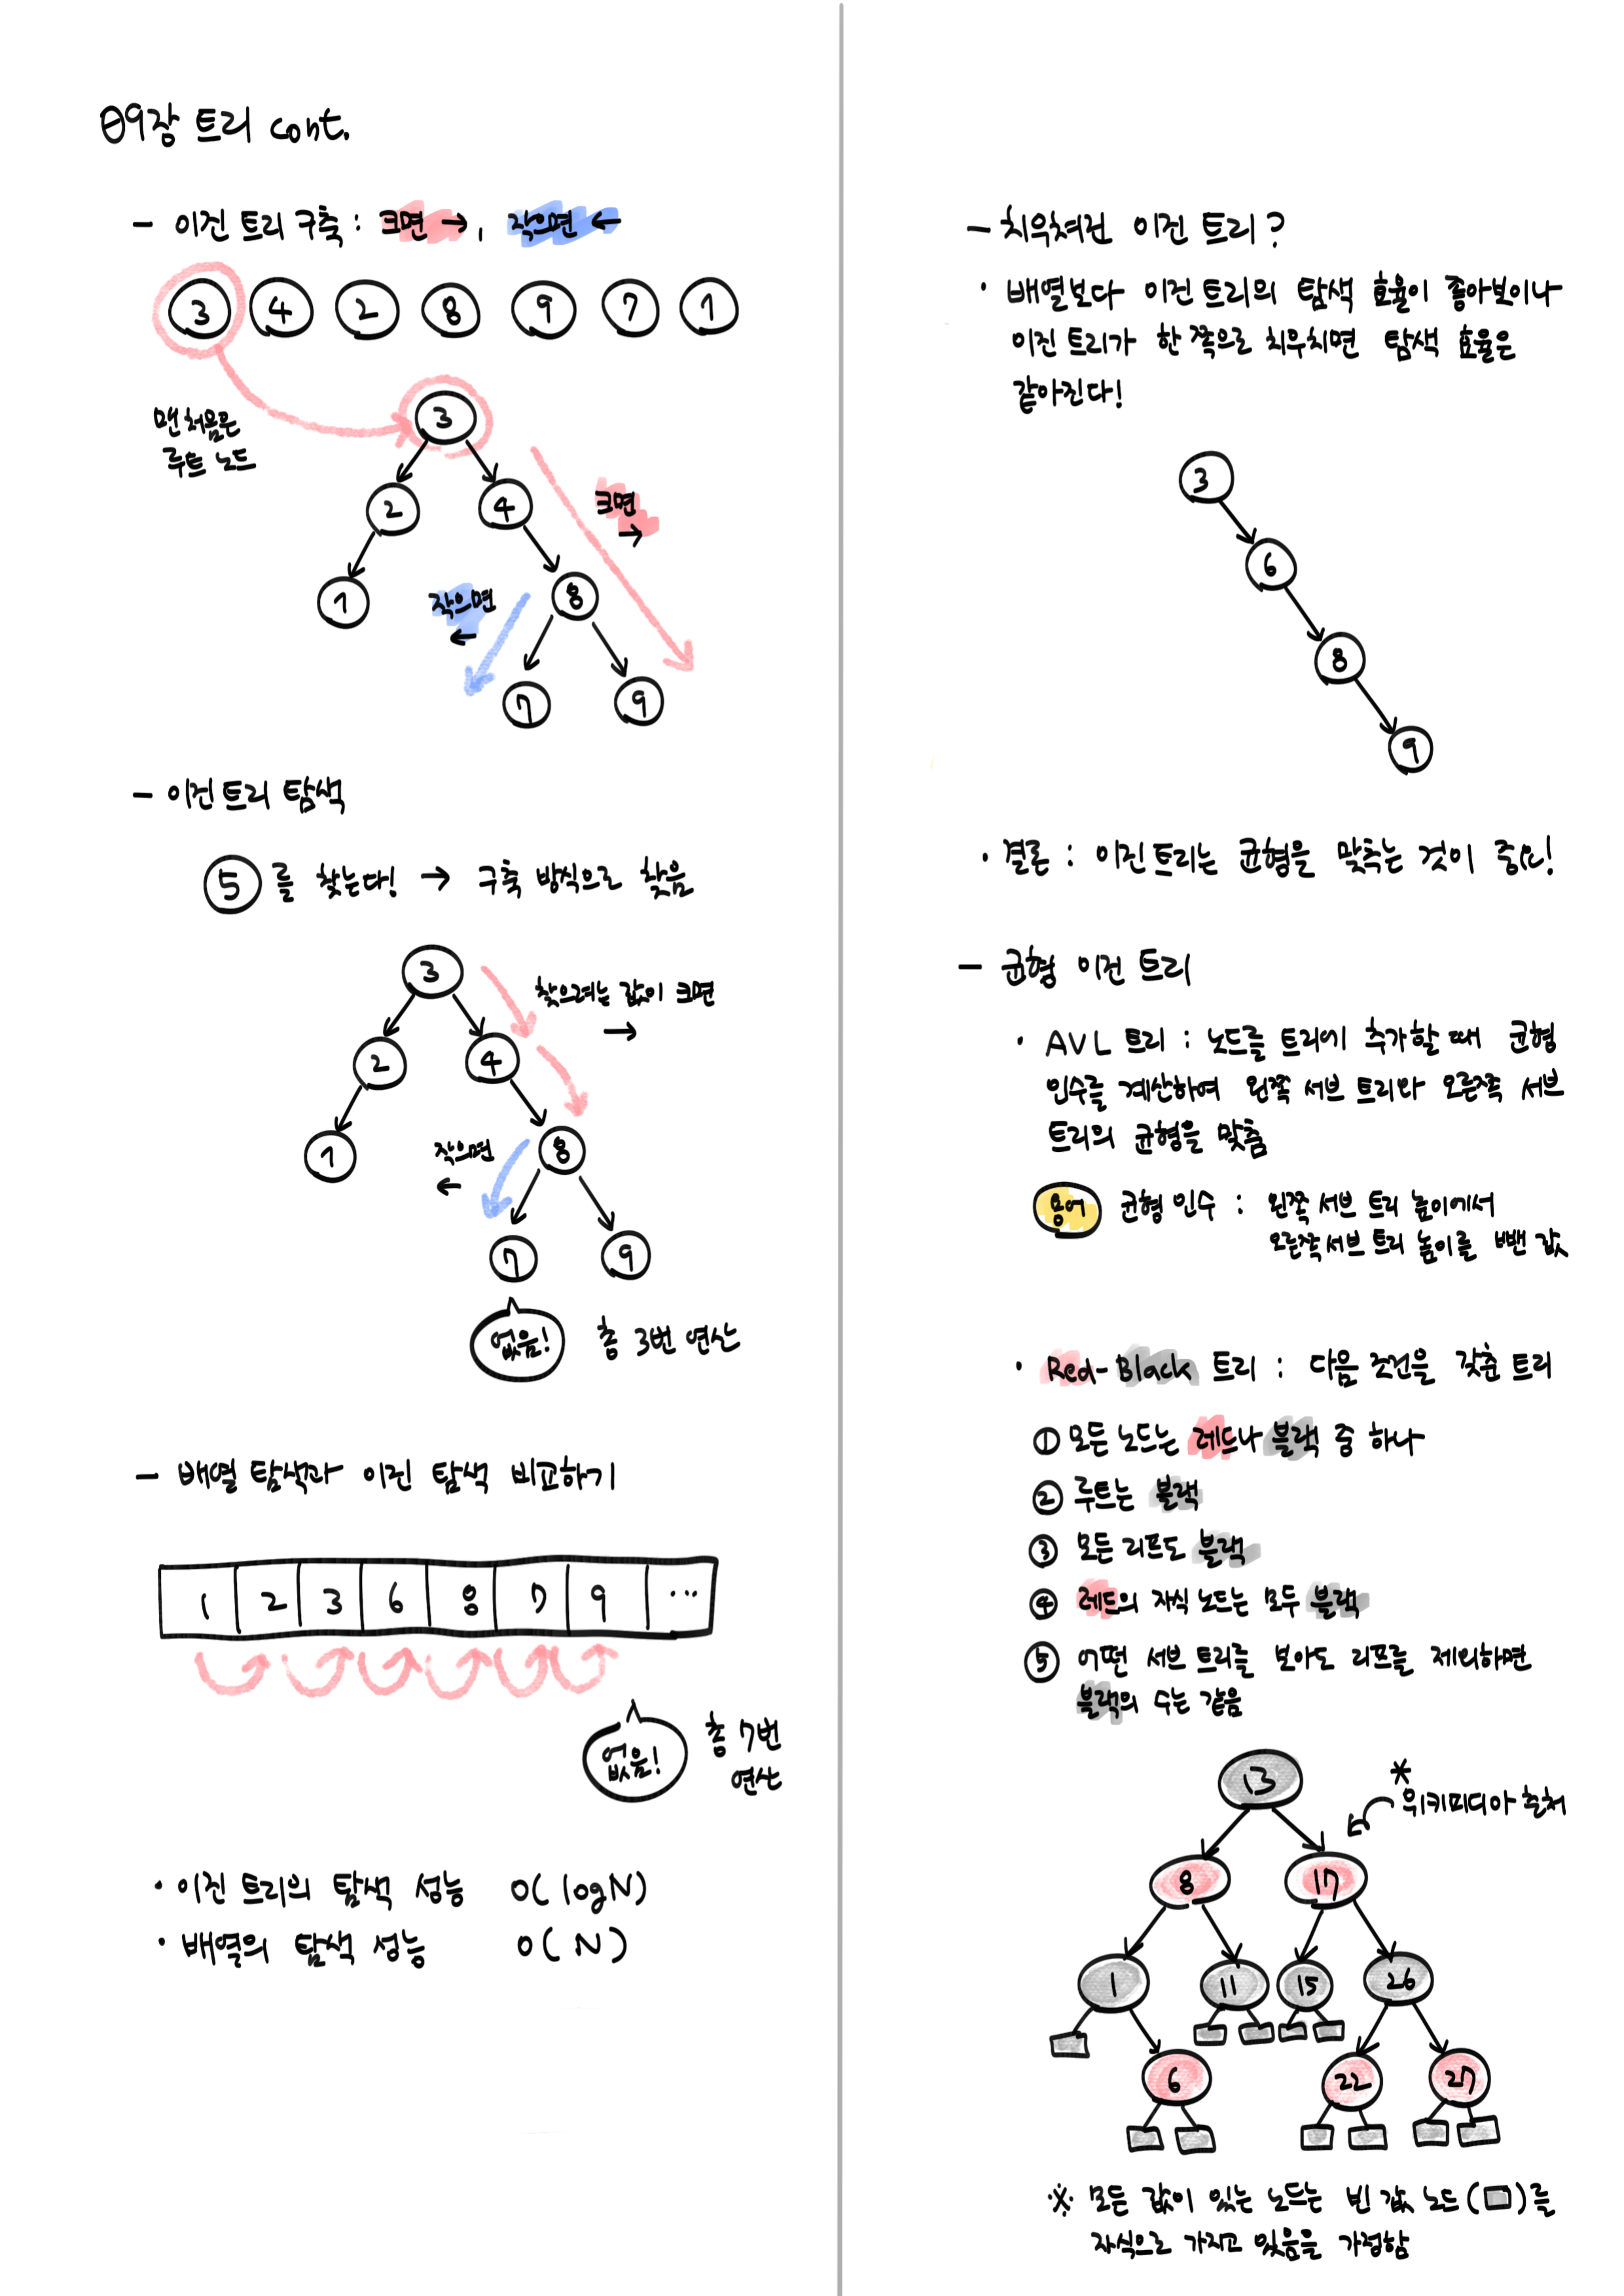 09장 트리 cont.
- 이진 트리 구축 : 크면 →, 작으면 ←
3 4 2 8 9 7 1
맨 처음은
루트 노드
3
2 4
크면
→
1 8
작으면
←
7 9
- 이진 트리 탐색
5 를 찾는다! → 구축 방식으로 찾음
3
찾으려는 값이 크면
→
2 4
1 8
작으면
←
7 9
없음! 총 3번 연산
- 배열 탐색과 이진 탐색 비교하기
1 2 3 6 8 7 9 ...
없음!
총 7번
연산
· 이진 트리의 탐색 성능 O(logN)
· 배열의 탐색 성능 O(N)
- 치우쳐진 이진 트리?
· 배열보다 이진 트리의 탐색 효율이 좋아보이나
이진 트리가 한 쪽으로 치우치면 탐색 효율은
같아진다!
3
6
8
9
· 결론 : 이진 트리는 균형을 맞추는 것이 중요!
- 균형 이진 트리
· AVL 트리 : 노드를 트리에 추가할 때 균형
인수를 계산하여 왼쪽 서브 트리와 오른쪽 서브
트리의 균형을 맞춤
용어 균형 인수 : 왼쪽 서브 트리 높이에서
오른쪽 서브 트리 높이를 뺀 값
· Red-Black 트리 : 다음 조건을 갖춘 트리
① 모든 노드는 레드나 블랙 중 하나
② 루트는 블랙
③ 모든 리프도 블랙
④ 레드의 자식 노드는 모두 블랙
⑤ 어떤 서브 트리를 보아도 리프를 제외하면
블랙의 수는 같음
13
* 위키미디아 출처
8 17
1 11 15 26
6 22 27
※ 모든 값이 있는 노드는 빈 값 노드(□)를
자식으로 가지고 있음을 가정함